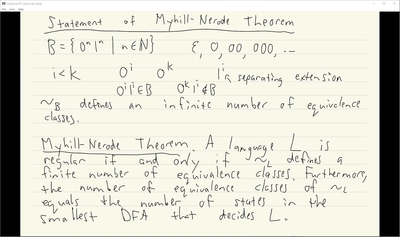 Statement of Myhill-Nerode Theorem
B = { 0ⁿ1ⁿ | n ∈ ℕ }    ε, 0, 00, 000, ...
i < k    0ⁱ    0ᵏ    1ⁱ is a separating extension
0ⁱ1ⁱ ∈ B    0ᵏ1ⁱ ∉ B
~_B defines an infinite number of equivalence
classes.
Myhill-Nerode Theorem. A language L is
regular if and only if ~_L defines a
finite number of equivalence classes. Furthermore,
the number of equivalence classes of ~_L
equals the number of states in the
smallest DFA that decides L.